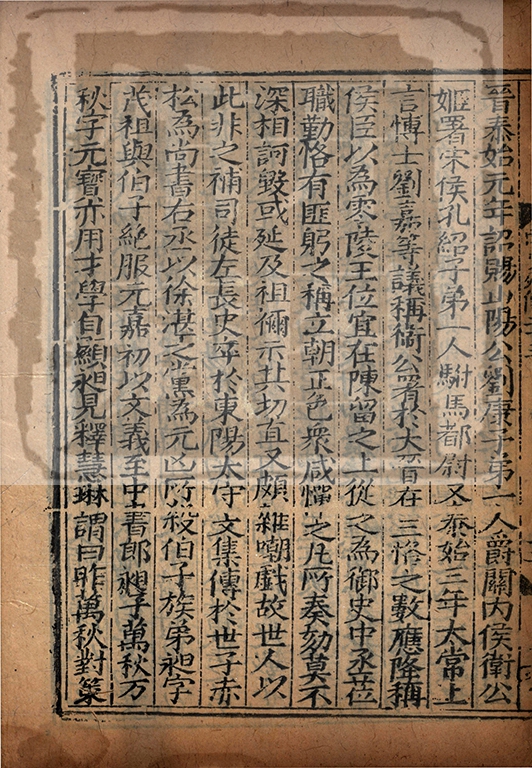 晉泰始元年詔賜山陽公劉康子弟一人爵關內侯衛公
姬署宋侯孔紹子弟一人駙馬都尉又泰始三年太常上
言博士劉嘉等議稱衛公署於大晉在三恪之數應降稱
侯臣以為零陵王位宜在陳留之上從之為御史中丞莅
職勤恪有匪躬之稱立朝正色衆咸憚之凡所奏劾莫不
深相訶毀或延及祖禰示其切直又頗雜嘲戲故世人以
此非之補司徒左長史卒於東陽太守文集傳於世子赤
松為尚書右丞以徐湛之黨為元凶所殺伯子族弟昶字
茂祖與伯子絕服元嘉初以文義至中書郎昶子萬秋万
秋字元寶亦用才學自顯昶見釋慧琳謂曰昨萬秋對策